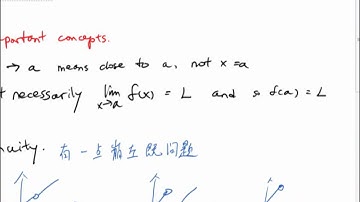 portant concepts.
→ a means close to a, not x = a
t necessarily lim x→a f(x) = L and so f(a) = L
nuity. 有一点
問題